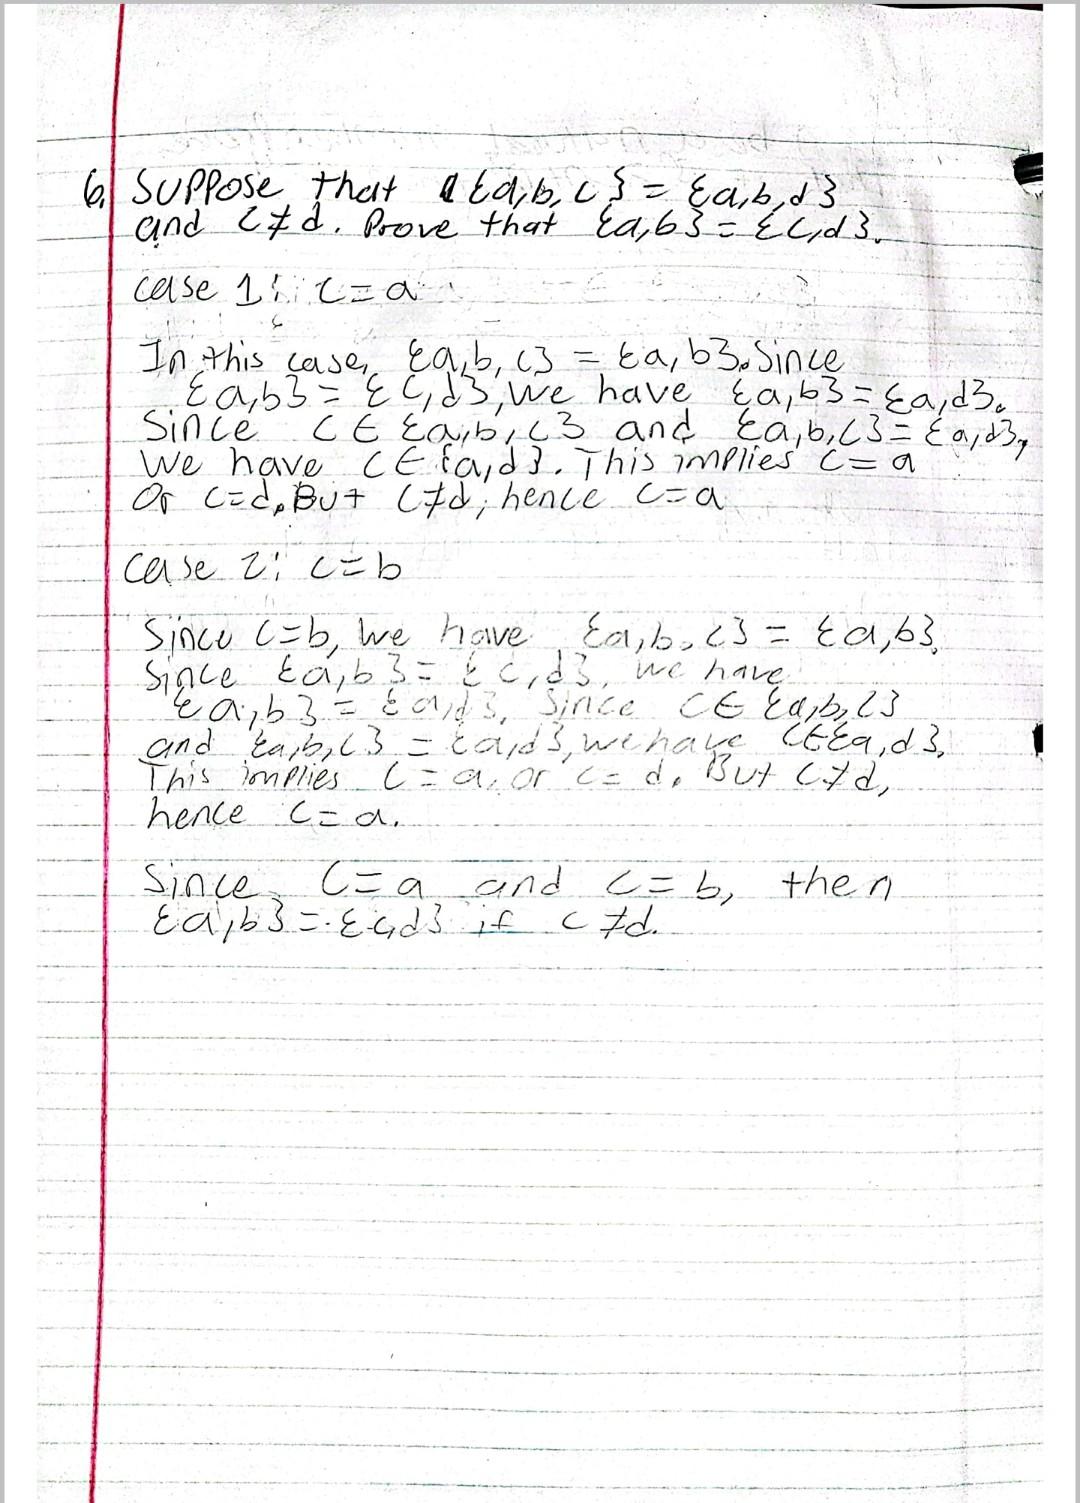 6. Suppose that {a,b,c} = {a,b,d}
and c≠d. Prove that {a,b} = {c,d}.
case 1: c=a
In this case, {a,b,c} = {a,b}. Since
{a,b} = {c,d}, we have {a,b} = {a,d}.
Since c∈{a,b,c} and {a,b,c} = {a,d},
we have c∈{a,d}. This implies c=a
or c=d. But c≠d, hence c=a
case 2: c=b
Since c=b, we have {a,b,c} = {a,b}.
Since {a,b} = {c,d}, we have
{a,b} = {a,d}. Since c∈{a,b,c}
and {a,b,c} = {a,d}, we have c∈{a,d}.
This implies c=a, or c=d. But c≠d,
hence c=a.
Since c=a and c=b, then
{a,b} = {c,d} if c≠d.